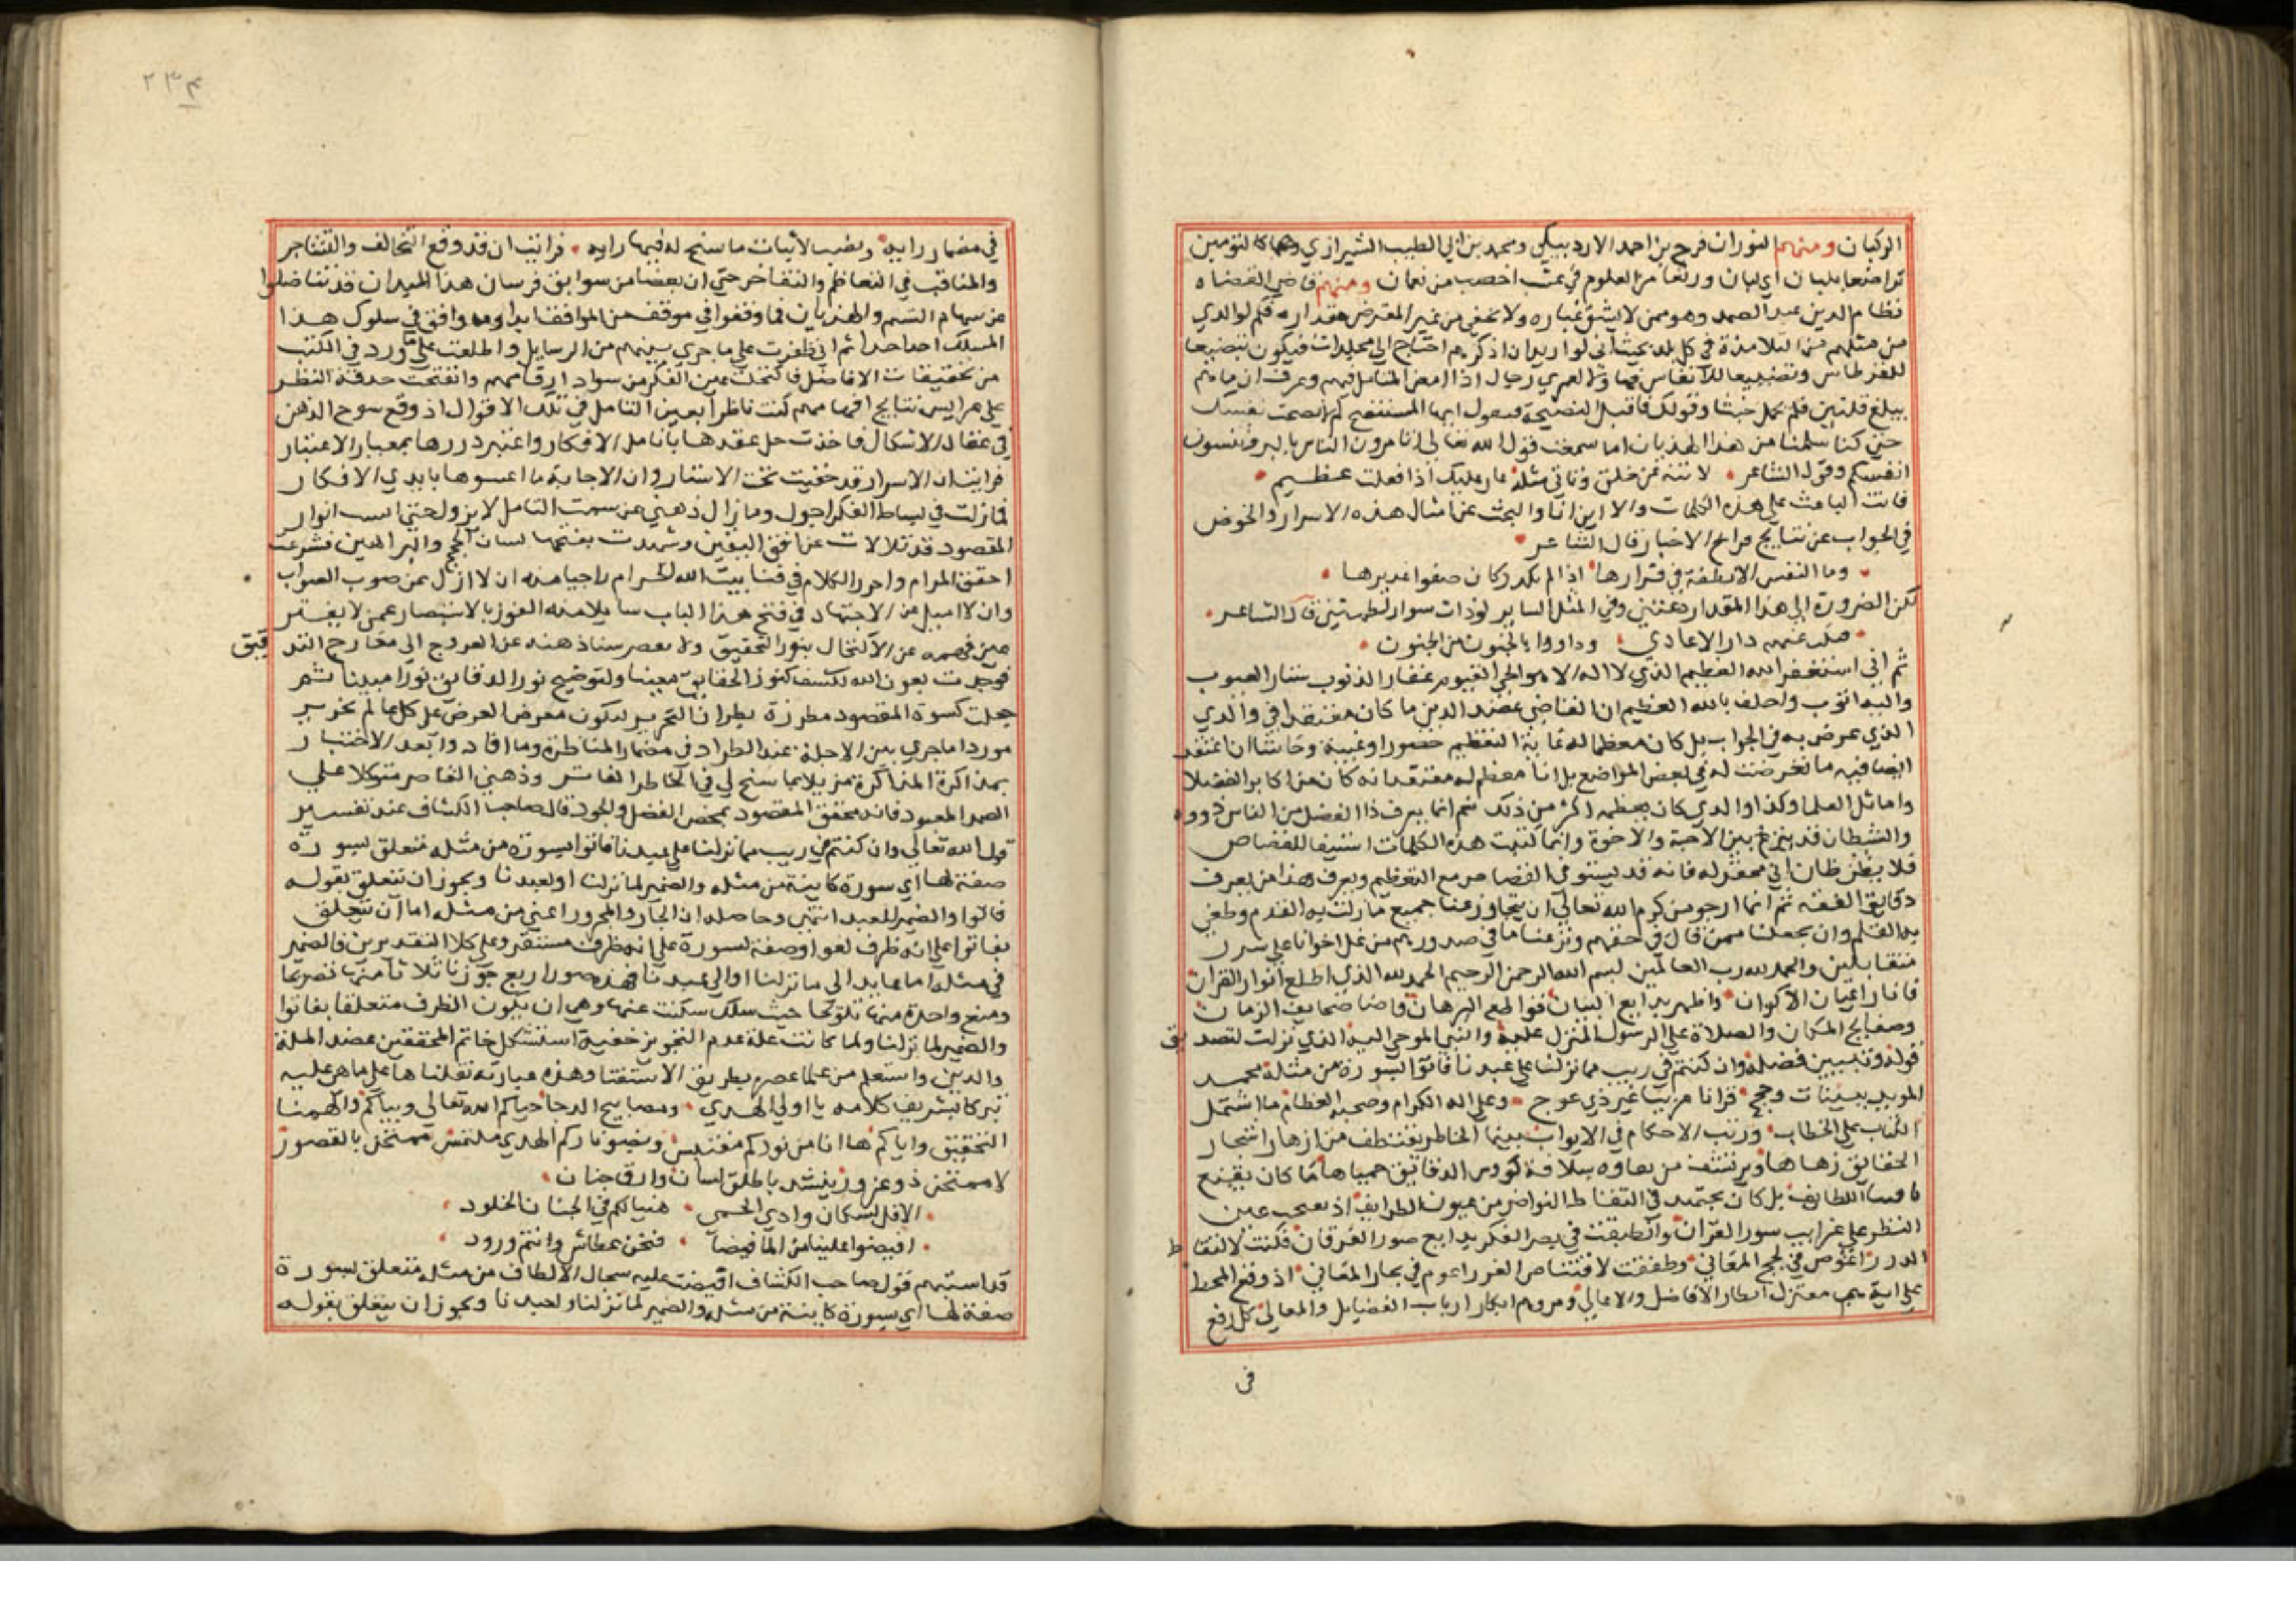 الركبان ومنهم النوران فرج بن احمد الاردبيلي ومحمد بن ابي الطيب الشيرازي وهما كالتومين
تراضعا بلبان اي لبان ورتعا من العلوم في عشب اخصب من نعمان ومنهم قاضي القضاه
نظام الدين عبد الصمد وهو ممن لا يشق غباره ولا يخفي من غير المقترض مقداره فكم لوالدي
من مثلهم من التلامذة في كل بلد بحيث اني لو اريد ان اذكرهم احتاج الي مجلدات فيكون تضييعا
للقرطاس وتضييعا للانفاس فهاؤلا لعمري رجال اذا امعن المتامل فيهم وعرف ان ما منهم
يبلغ قلتين فلم يحمل خبثا وقولك فاقبل النصيحة فنقول ايها المستنصح لم لا نصحت نفسك
حتي كنا سلمنا من هذا الهذيان اما سمعت قول الله تعالي اتامرون الناس بالبر وتنسون
انفسكم وقول الشاعر لا تنه عن خلق وتاتي مثله عار عليك اذا فعلت عظيم
فانت الباعث علي هذه الكلمات والا اين انا والبحث عن امثال هذه الاسرار والخوض
في الجواب عن نتايج قرايح الاخيار قال الشاعر
وما النفس الا نطفة في قرارها اذا لم يكدر كان صفوا غديرها
لكن الضرورة الي هذا المقدار دعتني وفي المثل الساير لو ذات سوار لطمتني قال الشاعر
عنهم دار الاعادي وداووا بالجنون من الجنون
ثم اني استغفر الله العظيم الذي لا اله الا هو الحي القيوم غفار الذنوب ستار العيوب
واليه اتوب واحلف بالله العظيم ان القاضي عضد الدين ما كان معتقدا في والدي
الذي عرض به في الجواب بل كان معظما له غاية التعظيم حضورا وغيبة وحاشا ان اعتقد
ايضا فيه ما تعرضت له في بعض المواضع بل انا معظم له معتقد انه كان من اكابر الفضلا
واماثل العلما وكذا والدي كان يعظمه اكثر من ذلك نعم انما يعرف ذا الفضل من الناس ذووه
والشيطان قد ينزغ بين الاحبة والاخوة وانما كتبت هذه الكلمات استيفا للقصاص
فلا يظن ظان اني محقر له فانه قد يستوفي القصاص مع التعظيم ويعرف هذا من يعرف
دقايق الفقه ثم انا ارجو من كرم الله تعالي ان يتجاوز عنا جميع ما زلت به القدم وطغي
به القلم وان يجعلنا ممن قال في حقهم ونزعنا ما في صدورهم من غل اخوانا علي سرر
متقابلين والحمد لله رب العالمين بسم الله الرحمن الرحيم الحمد لله الذي اطلع انوار القران
فانار اعيان الاكوان واظهر بدايع البيان قواطع البرهان فاضا صحايف الزمان
وصفايح المكان والصلاة علي الرسول المنزل عليه والنبي الموحي اليه الذي نزلت لتصديق
قوله وتبيين فضله وان كنتم في ريب مما نزلنا علي عبدنا فاتوا بسورة من مثله محمد
المويد ببينات وحجج قرانا عربيا غير ذي عوج وعلي اله الكرام وصحبه العظام ما اشتمل
الكتاب علي الخطاب ورتب الاحكام في الابواب بينما الخاطر يقتطف من ازهار اشجار
الحقايق زهاها ويرتشف من سلافة كؤوس الدقايق حمياها ما كان يقنع
باقتنا اللطايف بل كان يجتهد في التقاط النواضر من عيون الطرايف اذ
النظر علي غرايب سور القران وانطبقت في بصر الفكر بدايع صور الفرقان فكنت لالتقاط
الدرر اغوص في لجج المعاني وطفقت لاقتناص الغرر اعوم في بحار المعاني اذ وقع المحط
علي اية معترك انظار الافاضل والاعالي ومزدحم افكار ارباب الفضايل والمعالي كل رفع
في
٢٣٤
في مضمار رايه ونصب لاثبات ما سنح له فيها رايه فرايت ان قد وقع التخالف والتشاجر
والمناقب في التعاظم والتفاخر حتي ان بعضا من سوابق فرسان هذا الميدان قد تناضلوا
عن سهام الشتم والهذيان فما وقفوا في موقف من المواقف ابدا وما وافق في سلوك هذا
المسلك احد احدا ثم اني ظفرت علي ما جري بينهم من الرسايل واطلعت علي ما ورد في الكتب
من تحقيقات الافاضل فاكتحلت عين الفكر من سواد ارقامهم وانفتحت حدقة النظر
علي عرايس نتايج افهامهم كنت ناظرا بعين التامل في تلك الاقوال اذ وقع سوح الذهن
في عقال الاشكال فاخذت حل عقدها بانامل الافكار واعتبر دررها بمعيار الاعتبار
فرايت ان الاسرار قد خفيت تحت الاستار وان الاجابة ما اعسوها بايدي الافكار
فما زلت في بساط الفكر اجول وما زال ذهني عن سمت التامل لا يزول حتي انوار
المقصود قد تلالات عن افق اليقين وشهدت بفتحها لسان الحجج والبراهين فشرعت
احقق المرام واحرر الكلام في فنا بيت الله الحرام راجيا منه ان لا ازل عن صوب الصواب
وان لا اميل عن الاجتهاد في فتح هذا الباب سايلا منه الفوز بالاستبصار عمن لا يفتر
عين فهمه عن الاكتحال بنور التحقيق ولا يقصر سنا ذهنه عن العروج الي معارج التدقيق
فوجدت بعون الله لكشف كنوز الحقايق معينا ولتوضيح نور الدقايق نورا مبينا ثم
جعلت كسوة المقصود مطرزة بطراز التحرير ليكون معرض العرض علي كل عالم نحرير
موردا ما جري بين الاجلة عند الطراد في مضمار المناظرة وما افادوا بعد الاختبار
بمذاكرة المذاكرة مذيلا بما سنح لي في الخاطر الفاتر وذهني القاصر متوكلا علي
الصمد المعبود فانه محقق المقصود بمحض الفضل والجود قال صاحب الكشاف عند تفسير
قول الله تعالي وان كنتم في ريب مما نزلنا علي عبدنا فاتوا بسورة من مثله متعلق بسورة
صفة لها اي سورة كاينة من مثله والضمير لما نزلنا او لعبدنا ويجوز ان تتعلق بقوله
فاتوا والضمير للعبد انتهي وحاصله ان الجار والمجرور اعني من مثله اما ان تتعلق
بفاتوا علي انه ظرف لغو او صفة لسورة علي انه ظرف مستقر وعلي كلا التقديرين فالضمير
في مثله اما عايد الي ما نزلنا او الي عبدنا فهذه صور اربع جوز ثلاثا منها تصريحا
ومنع واحدة منها تلويحا حيث سكت عنها وهي ان يكون الظرف متعلقا بفاتوا
والضمير لما نزلنا ولما كانت علة عدم التجويز خفية استشكل خاتم المحققين عضد الملة
والدين واستعلم من علما عصره بطريق الاستفتا وهذه عبارته نقلناها علي ما هي عليه
تبركا بشريف كلامه يا اولي الهدي ومصابيح الدجا حياكم الله تعالي وبياكم والهمنا
التحقيق واياكم ها انا من نوركم مقتبس وبضوناركم الهدي ملتمس ممتحن بالقصور
لا ممتحن ذو غرور ينشد باطلق لسان وارق جنان
الا قل لسكان وادي الحمي هنيا لكم في الجنان الخلود
افيضوا علينا من الما فيضا فنحن عطاش وانتم ورود
قد استبهم قول صاحب الكشاف افيضت عليه سجال الالطاف من مثله متعلق بسورة
صفة لها اي سورة كاينة من مثله والضمير لما نزلنا ولعبدنا ويجوز ان يتعلق بقوله